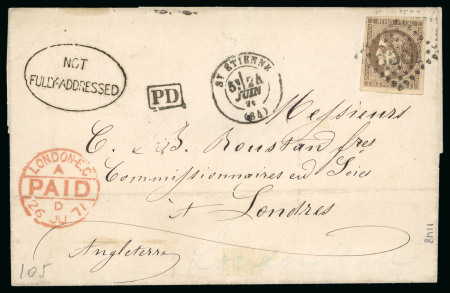 NOT
FULLY-ADDRESSED
PD
ST ETIENNE
5E 24
JUIN
71
(84)
Messieurs
C. & B. Roustan frres
Commissionnaires en Soies
à Londres
Angleterre
LONDON-E.C
A
PAID
D
26 JU 71
105
1148